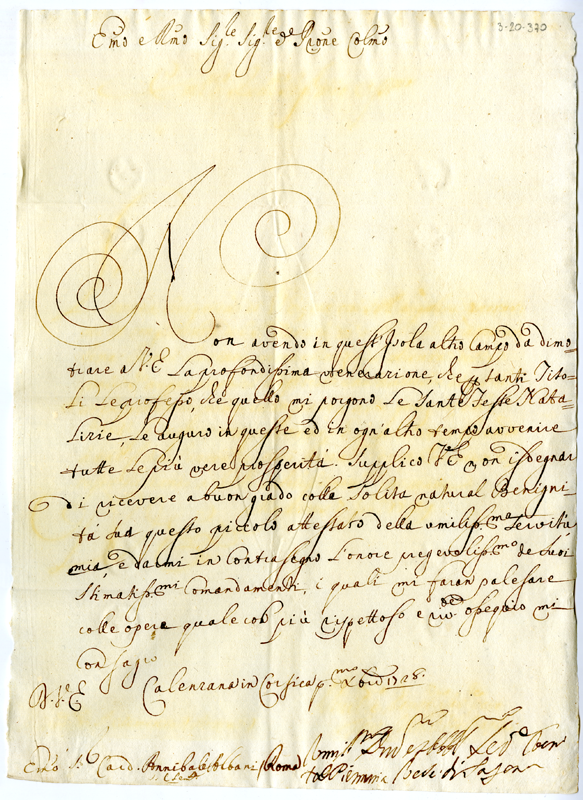 3-20-370
Emo e Rmo Sig.r Sig.r e Prone Colmo
Non avendo in quest'Isola altro Campo da dimo=
strare a V.E. La profondissima venerazione, che per tanti Tito=
li Le professo, che quello mi porgono Le Sante Feste Nata=
lizie, Le auguro in queste ed in ogn'altro tempo avvenire
tutte le più vere prosperità. Supplico V.E. non isdegnar
di ricevere a buon grado colla Solita natural Benigni=
tà Sua questo piccolo attestato della umiliss.ma Servitù
mia, e darmi in contrasegno L'onore pregevoliss.mo de Suoi
Stimatiss.mi Comandamenti, i quali mi faran palesare
colle opere quale col più rispettoso e ossequio mi
consagro
D. V.E.
Calenzana in Corsica p.mo Xbre 1728.
Emo S.r Card. Annibale Albani / Roma
Umil.mo